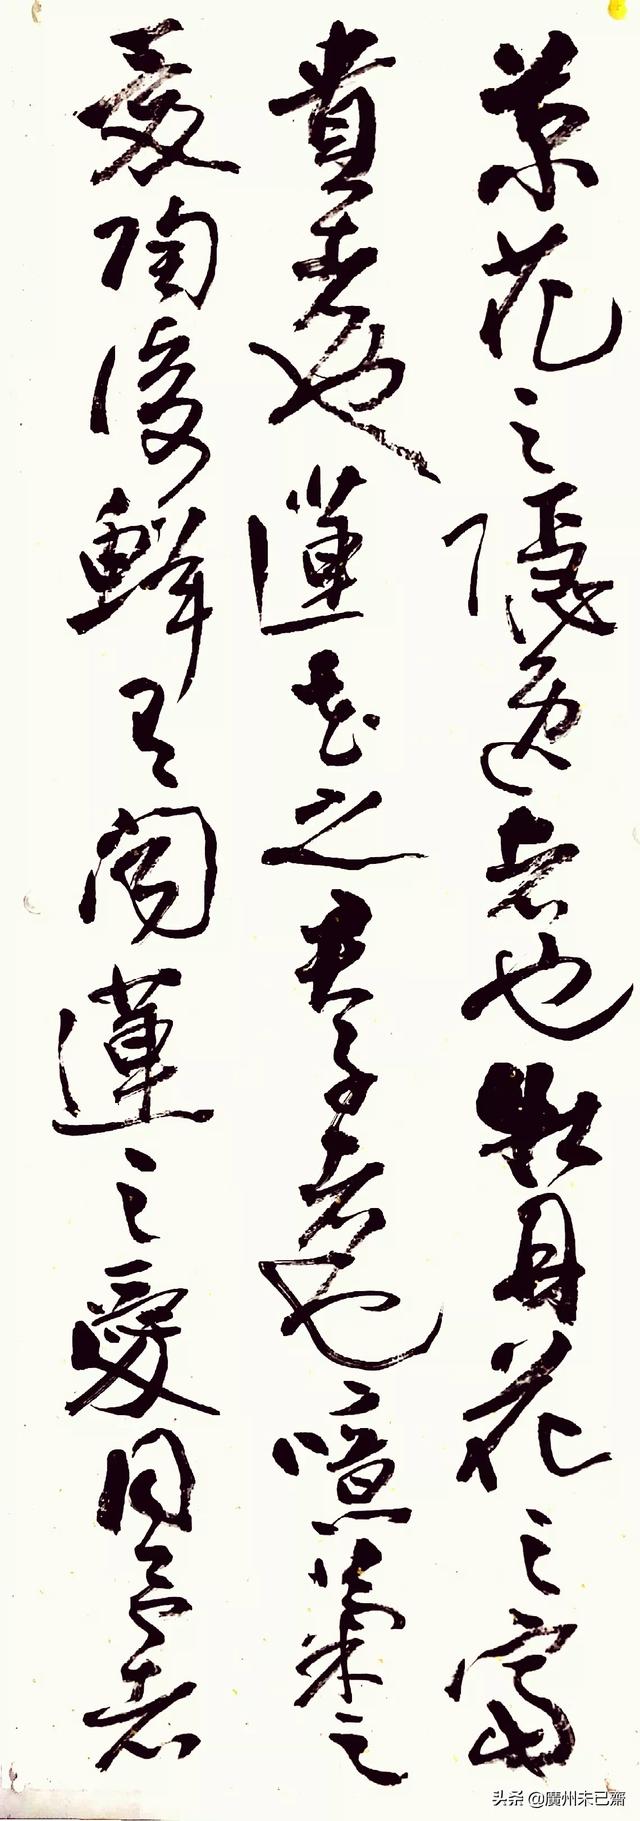 菊花之隱逸者也牡丹花之富
貴者也蓮花之君子者也噫菊之
愛陶後鮮有聞蓮之愛同予者
头条 @廣州未已齋